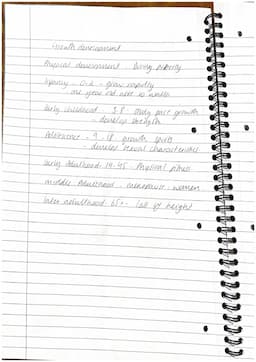 Growth development
Physical development During puberty
Infancy - 0-2 - grow rapidly
one year old able to walk
Early childhood 3-8 - steady pace growth
- develop strength
Adolescence - 9-18 growth spurts
- develop sexual characteristics
early Adulthood 19-45 - Physical fitness
middle Adulthood - menopause - women
later adulthood 65+ - height